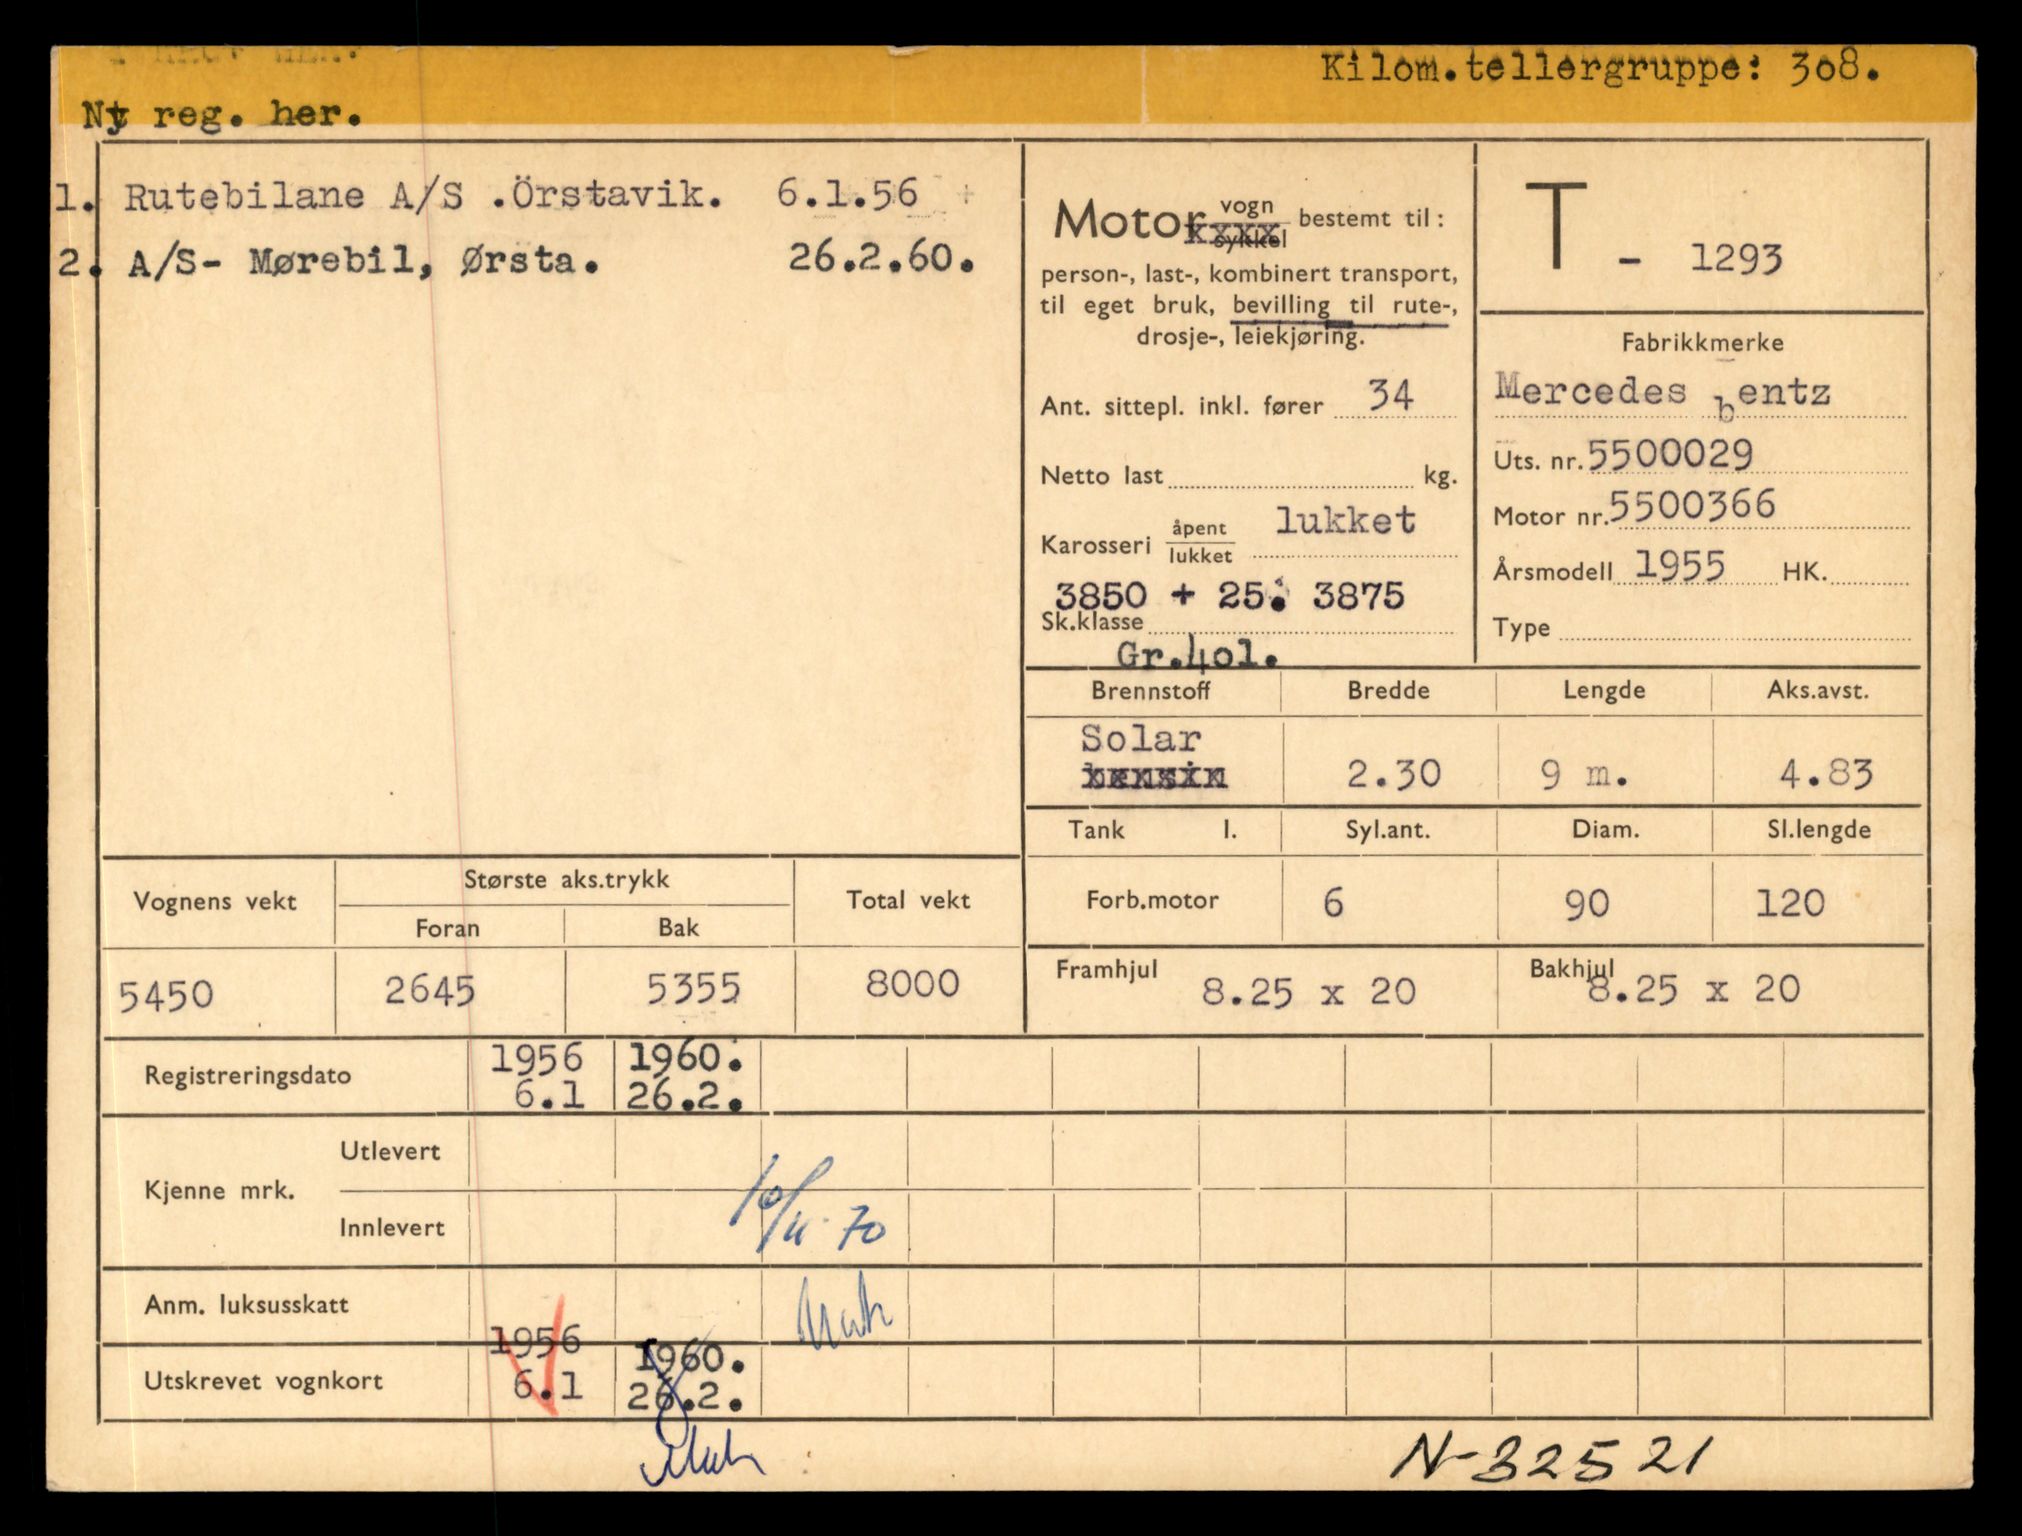 Kilom.tellergruppe: 308.
Ny reg. her.
1. Rutebilane A/S .Örstavik. 6.1.56
2. A/S- Mørebil, Ørsta. 26.2.60.
Motor vogn/sykkel bestemt til:
person-, last-, kombinert transport,
til eget bruk, bevilling til rute-,
drosje-, leiekjøring.
Ant. sittepl. inkl. fører 34
Netto last kg.
Karosseri åpent/lukket lukket
3850 + 25: 3875
Sk.klasse
Gr.401.
T - 1293
Fabrikkmerke
Mercedes bentz
Uts. nr. 5500029
Motor nr. 5500366
Årsmodell 1955 HK.
Type
Brennstoff Bredde Lengde Aks.avst.
Solar
bensin 2.30 9 m. 4.83
Tank l. Syl.ant. Diam. Sl.lengde
Forb.motor 6 90 120
Framhjul 8.25 x 20 Bakhjul 8.25 x 20
Vognens vekt Største aks.trykk Total vekt
Foran Bak
5450 2645 5355 8000
Registreringsdato 1956 1960.
6.1 26.2.
Kjenne mrk. Utlevert
Innlevert 10/11-70
Anm. luksusskatt
Utskrevet vognkort 1956 1960.
6.1 26.2.
N-32521